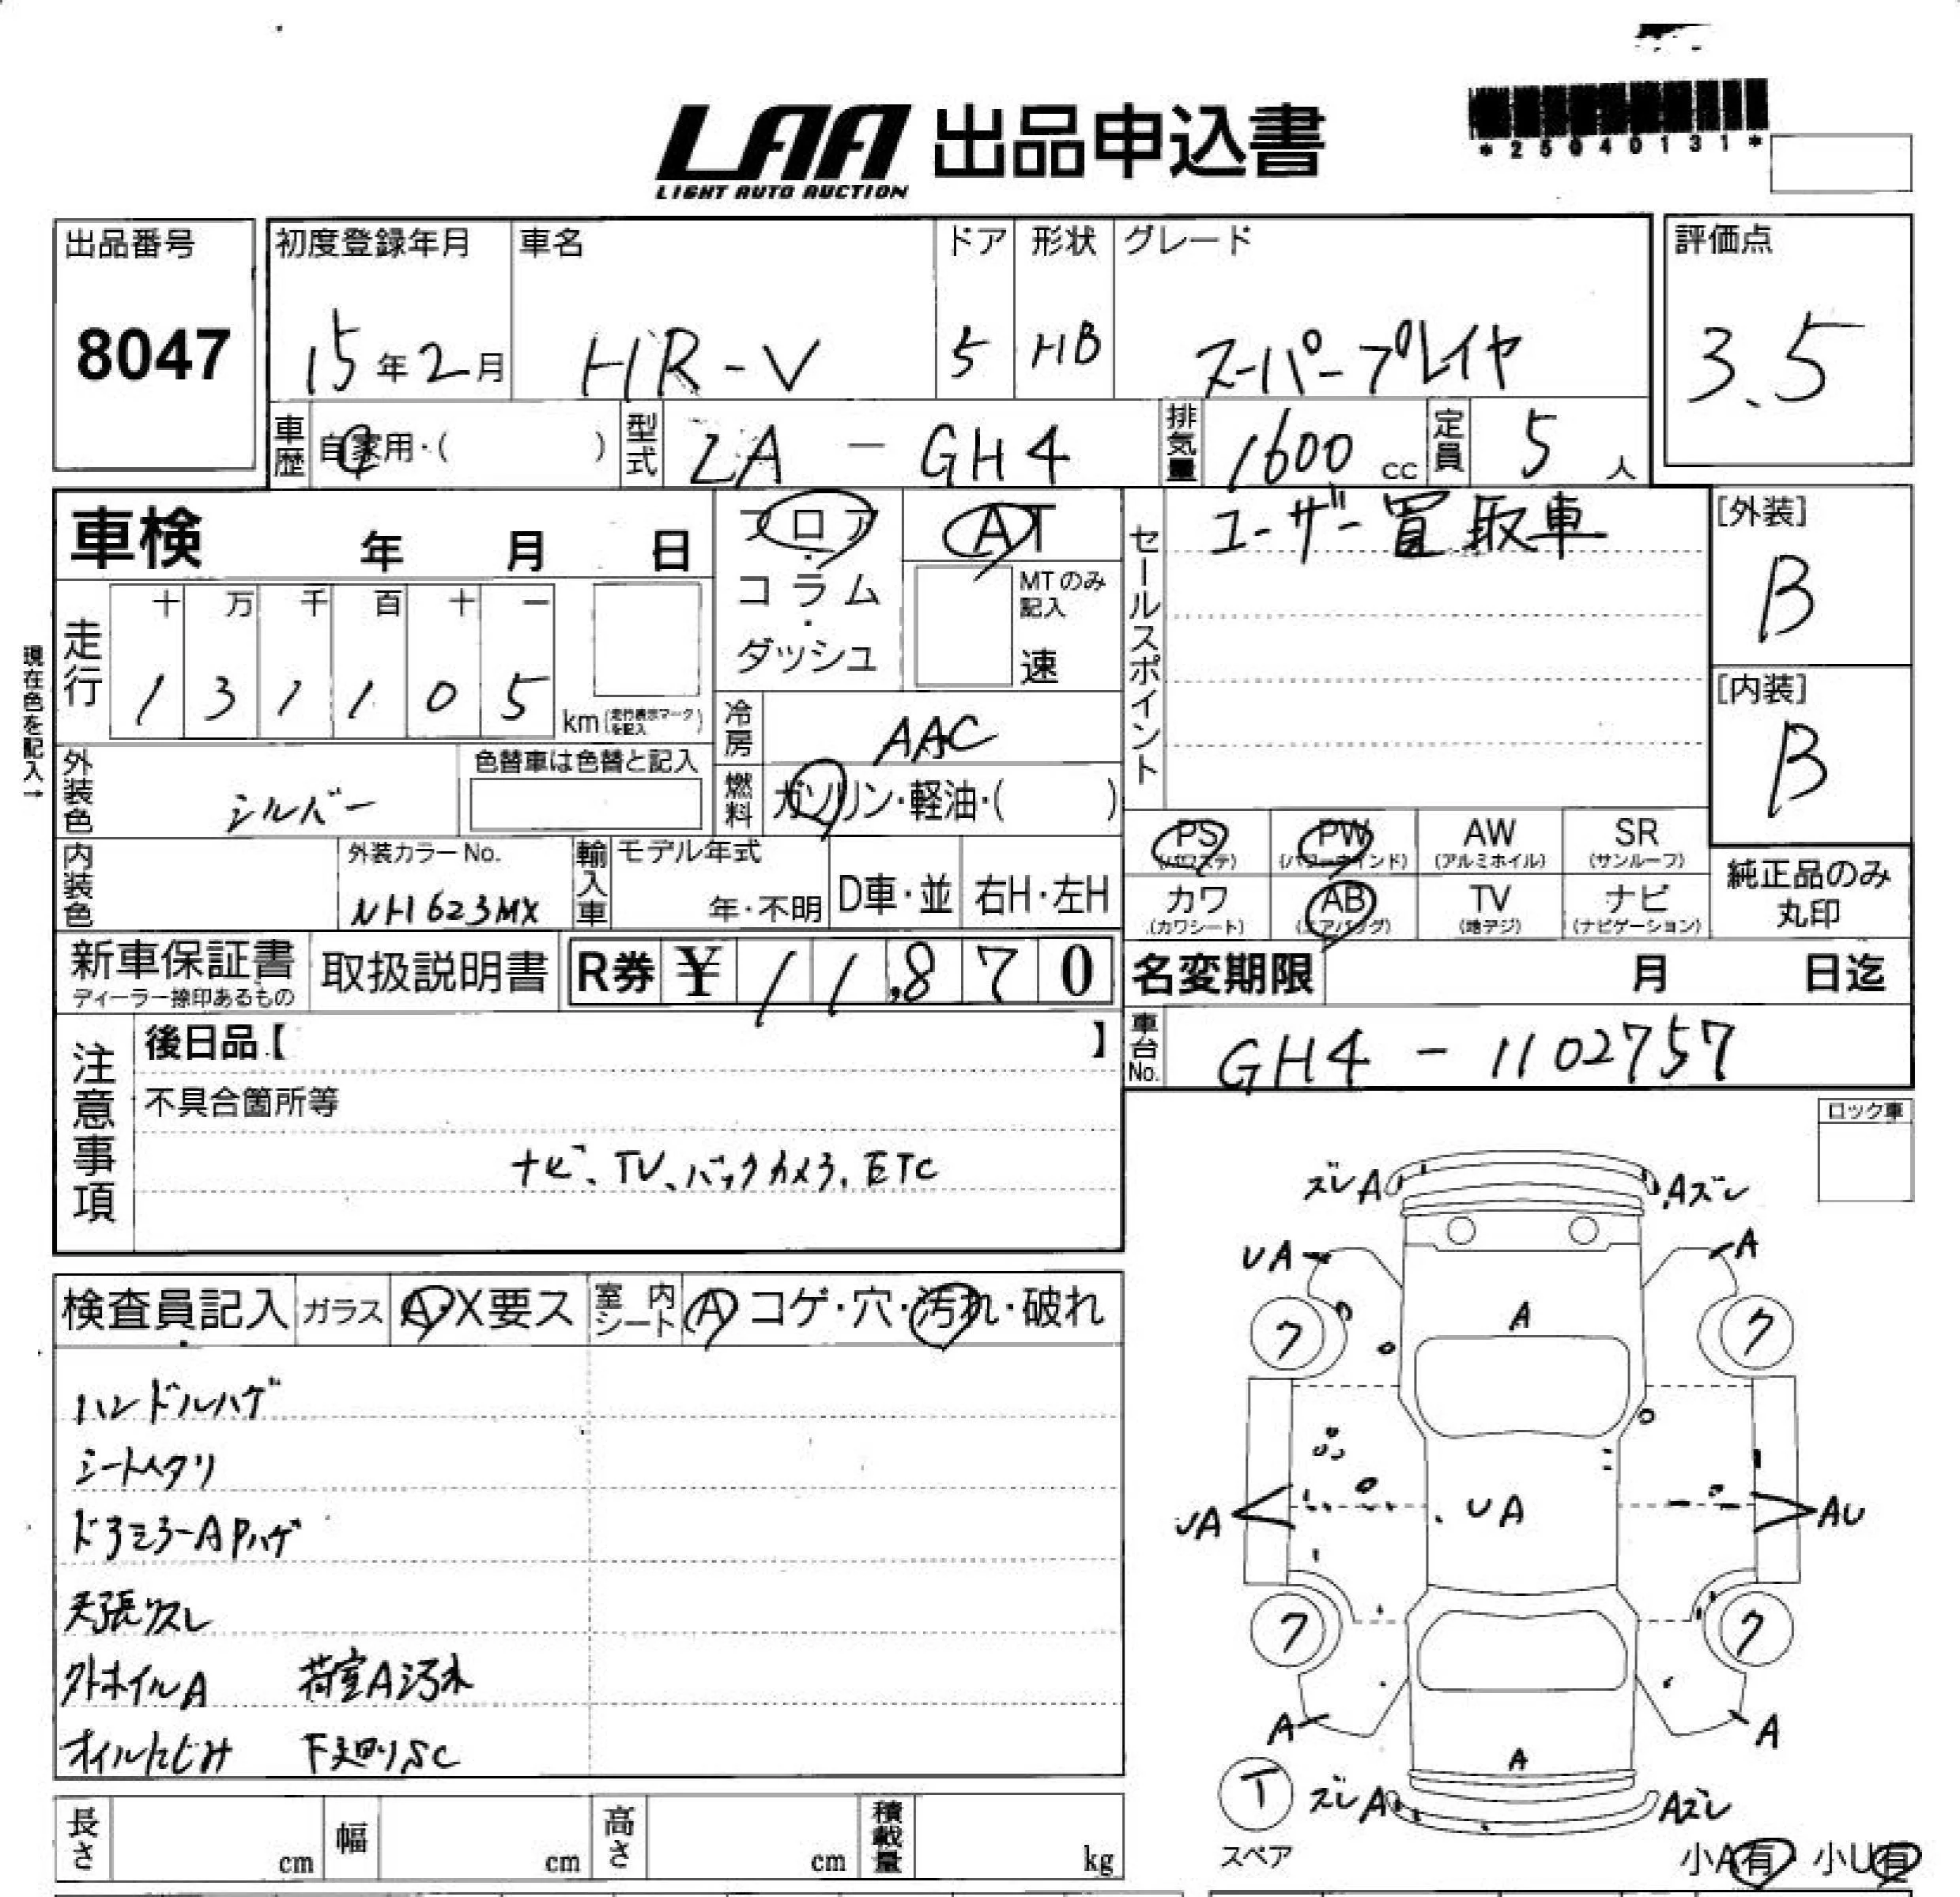 LAA 出品申込書
LIGHT AUTO AUCTION
*25040131*
出品番号
8047
初度登録年月
15年2月
車名
HR-V
ドア
5
形状
HB
グレード
スーパープレイヤ
評価点
3.5
車歴
自家用・( )
型式
LA - GH4
排気量
1600 cc
定員
5 人
車検 年 月 日
フロア・コラム・ダッシュ
AT
MTのみ記入
速
セールスポイント
ユーザー買取車
[外装]
B
[内装]
B
現在色を記入→
走行
十 万 千 百 十 一
1 3 1 1 0 5
km (走行表示マークを記入)
冷房
AAC
燃料
ガソリン・軽油・( )
外装色
シルバー
色替車は色替と記入
内装色
外装カラーNo.
NH623MX
輸入車
モデル年式
年・不明
D車・並
右H・左H
PS (パワステ)
PW (パワーウインド)
AW (アルミホイル)
SR (サンルーフ)
カワ (カワシート)
AB (エアバッグ)
TV (地デジ)
ナビ (ナビゲーション)
純正品のみ丸印
新車保証書
ディーラー捺印あるもの
取扱説明書
R券 ¥11,870
名変期限 月 日迄
車台No.
GH4 - 1102757
注意事項
後日品【 】
不具合箇所等
ナビ、TV、バックカメラ、ETC
ロック車
検査員記入
ガラス
A・X要ス
室内シート
A コゲ・穴・汚れ・破れ
ハンドルハゲ
シートヘタリ
ドアミラーAPハゲ
天張リスレ
外ホイルA 荷室A汚れ
オイルにじみ 下廻りSC
ズレA
Aズレ
UA
A
ク
A
ク
UA
UA
AU
ク
ク
A
A
A
T
スペア
ズレA
Aズレ
小A有・小U有
長さ cm
幅 cm
高さ cm
積載量 kg